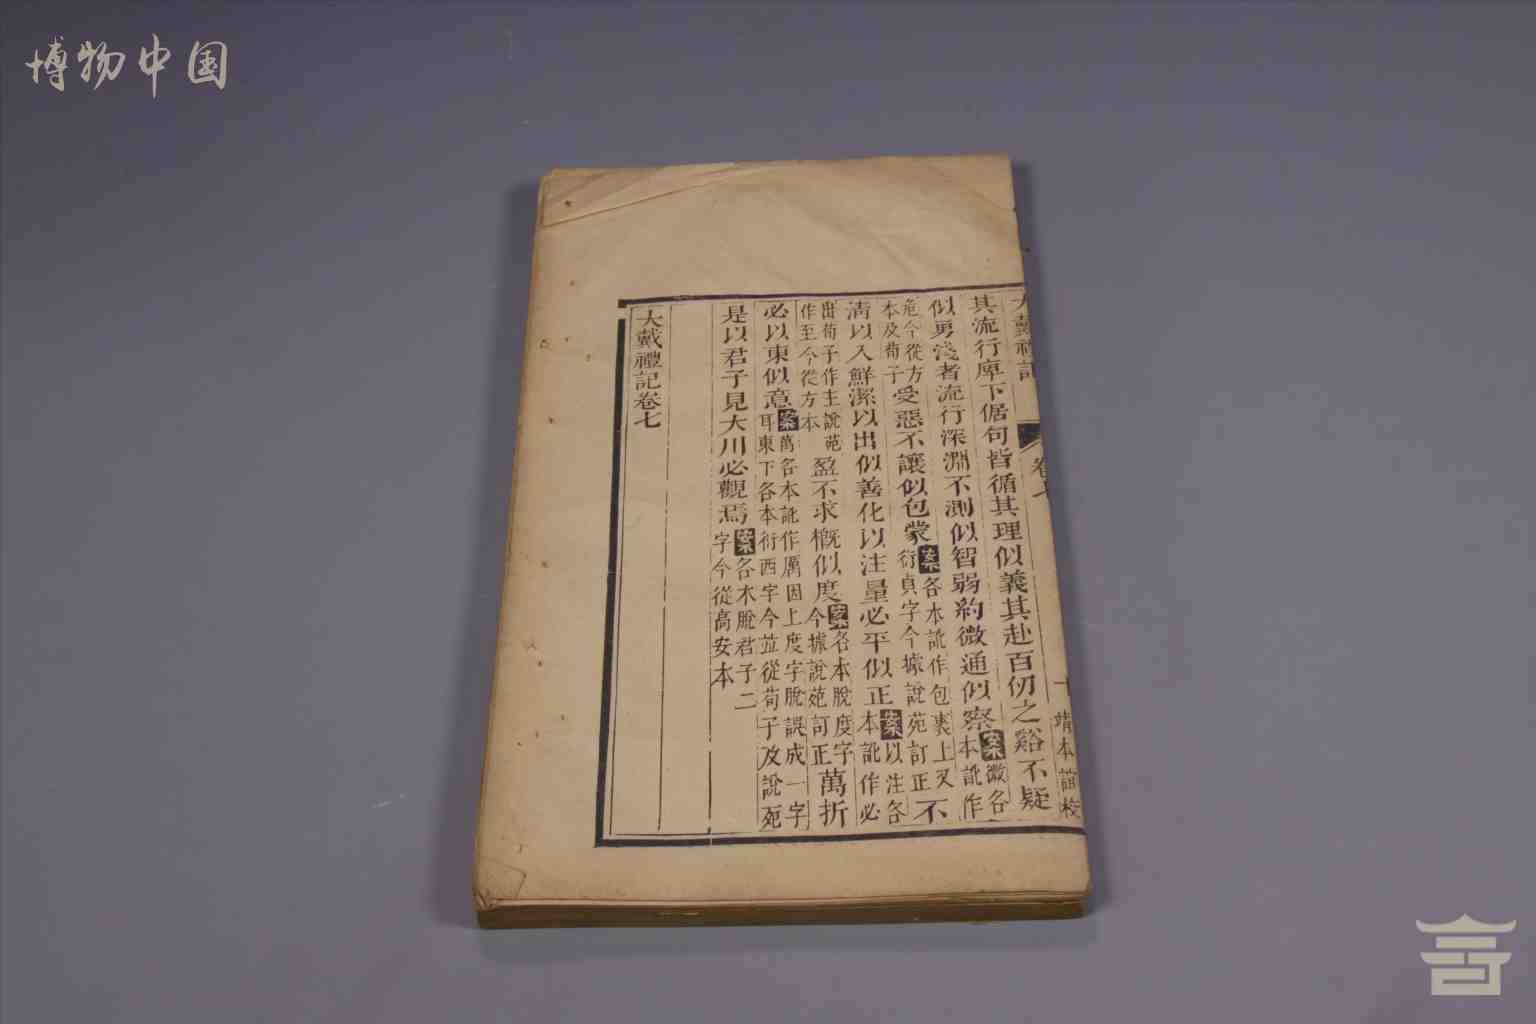 博物中国
大戴禮記 卷七 十
其流行庳下倨句皆循其理似義其赴百仞之谿不疑
似勇淺者流行深淵不測似智弱約微通似察案微各本訛作
危今從方本及荀子受惡不讓似包蒙案各本訛作包裹上又衍貞字今據說苑訂正不
清以入鮮潔以出似善化以注量必平似正案以注各本訛作必
出荀子作主說苑作至今從方本盈不求概似度案各本脫度字今據說苑訂正萬折
必以東似意案萬各本訛作厲因上度字脫誤成一字耳東下各本衍西字今並從荀子及說苑
是以君子見大川必觀焉案各本脫君子二字今從高安本
大戴禮記卷七